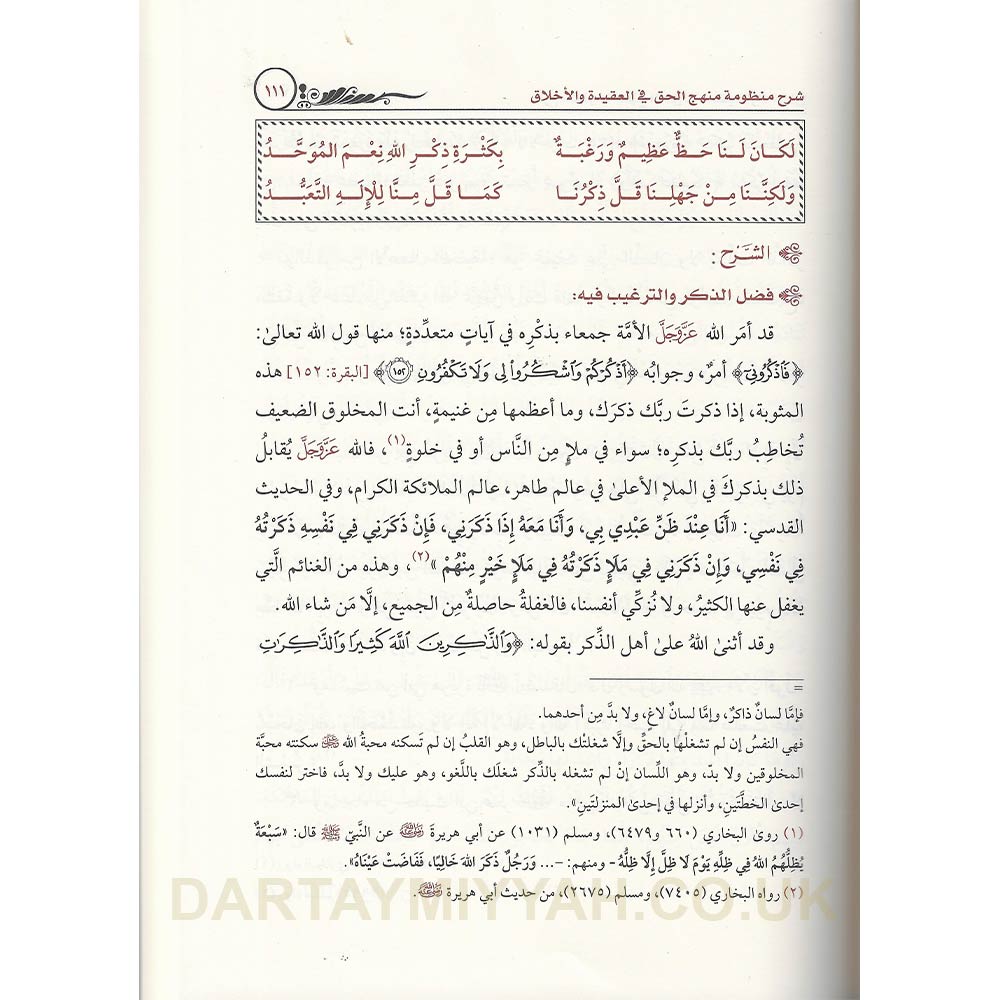 شرح منظومة منهج الحق في العقيدة والأخلاق ١١١
لَكَانَ لَنَا حَظٌّ عَظِيمٌ وَرَغْبَةٌ بِكَثْرَةِ ذِكْرِ اللهِ نِعْمَ المُوَحَّدُ
وَلَكِنَّنَا مِنْ جَهْلِنَا قَلَّ ذِكْرُنَا كَمَا قَلَّ مِنَّا لِلْإِلَهِ التَّعَبُّدُ
الشَّرْح:
فضل الذكر والترغيب فيه:
قد أمَر الله عَزَّوَجَلَّ الأمَّة جمعاء بذكْرِه في آياتٍ متعدِّدةٍ؛ منها قول الله تعالىٰ:
﴿فَٱذۡكُرُونِيٓ﴾ أمرٌ، وجوابُه ﴿أَذۡكُرۡكُمۡ وَٱشۡكُرُواْ لِي وَلَا تَكۡفُرُونِ ١٥٢﴾ [البقرة: ١٥٢] هذه
المثوبة، إذا ذكرتَ ربَّك ذكرَك، وما أعظمها مِن غنيمةٍ، أنت المخلوق الضعيف
تُخاطِبُ ربَّك بذكرِه؛ سواء في ملإٍ مِن النَّاس أو في خلوةٍ(١)، فالله عَزَّوَجَلَّ يُقابلُ
ذلك بذكركَ في الملإ الأعلىٰ في عالم طاهر، عالم الملائكة الكرام، وفي الحديث
القدسي: «أَنَا عِنْدَ ظَنِّ عَبْدِي بِي، وَأَنَا مَعَهُ إِذَا ذَكَرَنِي، فَإِنْ ذَكَرَنِي فِي نَفْسِهِ ذَكَرْتُهُ
فِي نَفْسِي، وَإِنْ ذَكَرَنِي فِي مَلَإٍ ذَكَرْتُهُ فِي مَلَإٍ خَيْرٍ مِنْهُمْ»(٢)، وهذه من الغنائم الَّتي
يغفل عنها الكثيرُ، ولا نُزكِّي أنفسنا، فالغفلةُ حاصلةٌ مِن الجميع، إلَّا مَن شاء الله.
وقد أثنىٰ اللهُ علىٰ أهل الذِّكر بقوله: ﴿وَٱلذَّٰكِرِينَ ٱللَّهَ كَثِيرٗا وَٱلذَّٰكِرَٰتِ
=
فإمَّا لسانٌ ذاكرٌ، وإمَّا لسانٌ لاغٍ، ولا بدَّ مِن أحدهما.
فهي النفسُ إن لم تشغلْها بالحقِّ وإلَّا شغلتْك بالباطل، وهو القلبُ إن لم تَسكنه محبةُ الله سكنته محبَّة
المخلوقين ولا بدّ، وهو اللِّسان إنْ لم تشغله بالذِّكر شغلَك باللَّغو، وهو عليك ولا بدَّ، فاختر لنفسك
إحدىٰ الخطَّتَينِ، وأنزلها في إحدىٰ المنزلتَينِ».
(١) روىٰ البخاري (٦٦٠ و٦٤٧٩)، ومسلم (١٠٣١) عن أبي هريرة رَضِيَ اللهُ عَنْهُ عن النَّبيِّ ﷺ قال: «سَبْعَةٌ
يُظِلُّهُمُ اللهُ فِي ظِلِّهِ يَوْمَ لَا ظِلَّ إِلَّا ظِلُّهُ - ومنهم: -... وَرَجُلٌ ذَكَرَ اللهَ خَالِيًا، فَفَاضَتْ عَيْنَاهُ».
(٢) رواه البخاري (٧٤٠٥)، ومسلم (٢٦٧٥)، من حديث أبي هريرة رَضِيَ اللهُ عَنْهُ.
DARTAYMIYYAH.CO.UK